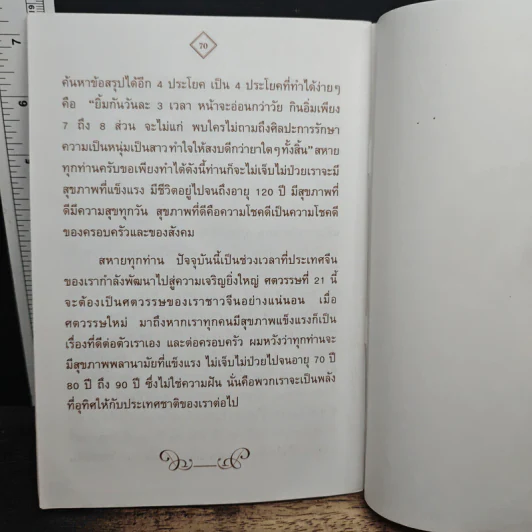 70
ค้นหาข้อสรุปได้อีก 4 ประโยค เป็น 4 ประโยคที่ทำได้ง่ายๆ
คือ "ยิ้มกันวันละ 3 เวลา หน้าจะอ่อนกว่าวัย กินอิ่มเพียง
7 ถึง 8 ส่วน จะไม่แก่ พบใครไม่ถามถึงศิลปะการรักษา
ความเป็นหนุ่มเป็นสาว ทำใจให้สงบดีกว่ายาใดๆทั้งสิ้น" สหาย
ทุกท่านครับขอเพียงทำได้ดังนี้ท่านก็จะไม่เจ็บไม่ป่วยเราจะมี
สุขภาพที่แข็งแรง มีชีวิตอยู่ไปจนถึงอายุ 120 ปี มีสุขภาพที่
ดีมีความสุขทุกวัน สุขภาพที่ดีคือความโชคดีเป็นความโชคดี
ของครอบครัวและของสังคม
สหายทุกท่าน ปัจจุบันนี้เป็นช่วงเวลาที่ประเทศจีน
ของเรากำลังพัฒนาไปสู่ความเจริญยิ่งใหญ่ ศตวรรษที่ 21 นี้
จะต้องเป็นศตวรรษของเราชาวจีนอย่างแน่นอน เมื่อ
ศตวรรษใหม่ มาถึงหากเราทุกคนมีสุขภาพแข็งแรงก็เป็น
เรื่องที่ดีต่อตัวเราเอง และต่อครอบครัว ผมหวังว่าทุกท่านจะ
มีสุขภาพพลานามัยที่แข็งแรง ไม่เจ็บไม่ป่วยไปจนอายุ 70 ปี
80 ปี ถึง 90 ปี ซึ่งไม่ใช่ความฝัน นั่นคือพวกเราจะเป็นพลัง
ที่อุทิศให้กับประเทศชาติของเราต่อไป
7
6
5